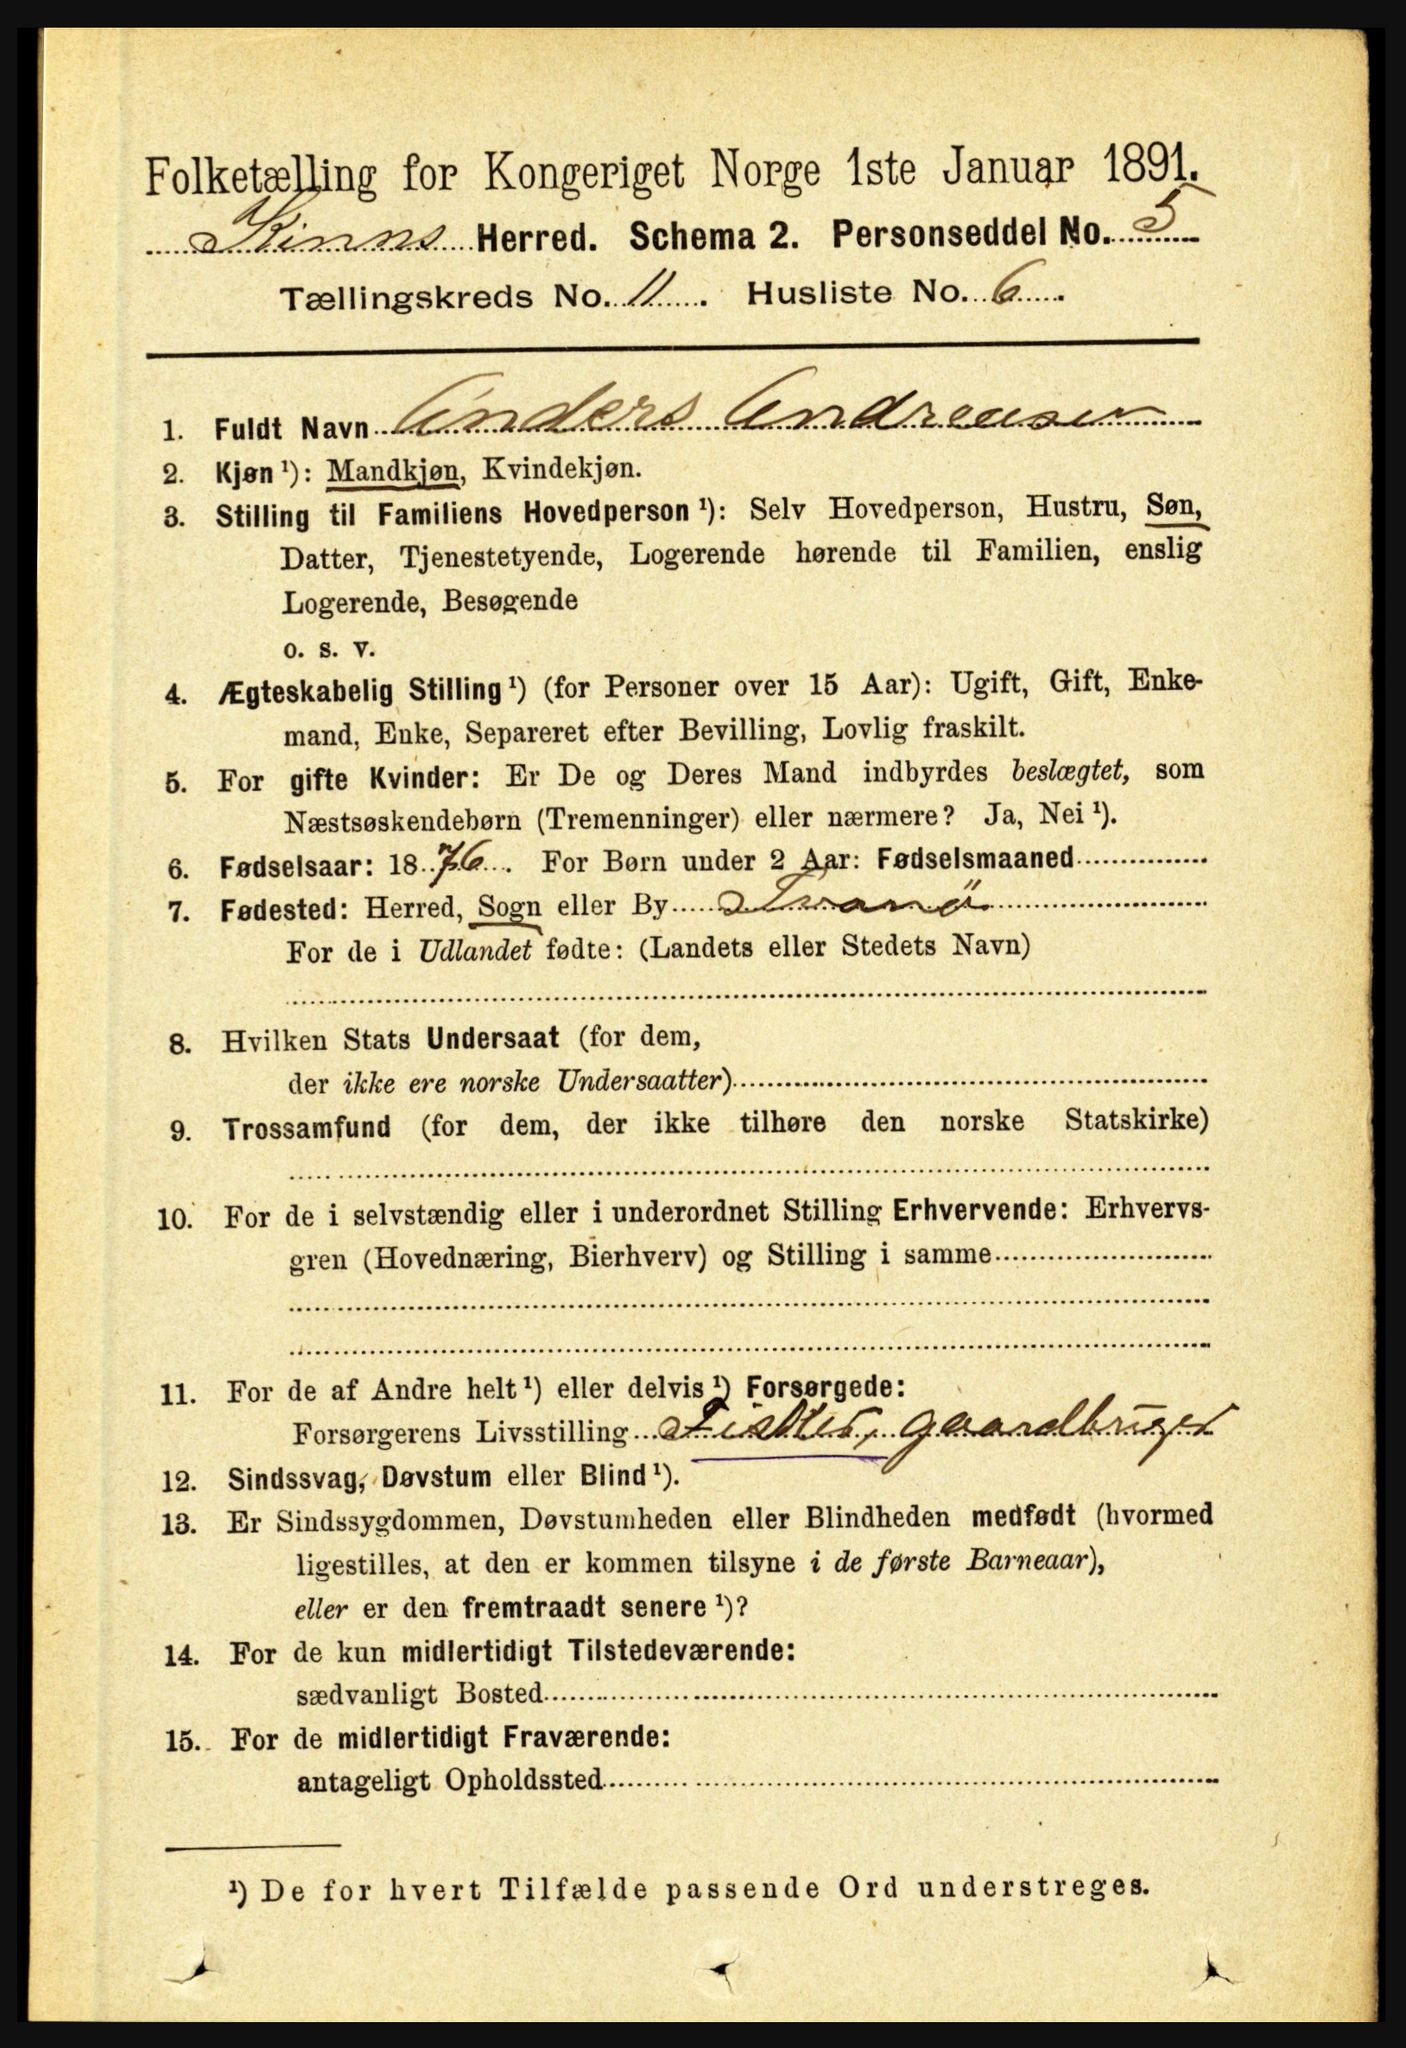 Folketælling for Kongeriget Norge 1ste Januar 1891.
Kinns Herred. Schema 2. Personseddel No. 5
Tællingskreds No. 11. Husliste No. 6.
1. Fuldt Navn Anders Andreasen
2. Kjøn ¹): Mandkjøn, Kvindekjøn.
3. Stilling til Familiens Hovedperson ¹): Selv Hovedperson, Hustru, Søn,
Datter, Tjenestetyende, Logerende hørende til Familien, enslig
Logerende, Besøgende
o. s. v.
4. Ægteskabelig Stilling ¹) (for Personer over 15 Aar): Ugift, Gift, Enke-
mand, Enke, Separeret efter Bevilling, Lovlig fraskilt.
5. For gifte Kvinder: Er De og Deres Mand indbyrdes beslægtet, som
Næstsøskendebørn (Tremenninger) eller nærmere? Ja, Nei ¹).
6. Fødselsaar: 1876. For Børn under 2 Aar: Fødselsmaaned
7. Fødested: Herred, Sogn eller By Svanö
For de i Udlandet fødte: (Landets eller Stedets Navn)
8. Hvilken Stats Undersaat (for dem,
der ikke ere norske Undersaatter)
9. Trossamfund (for dem, der ikke tilhøre den norske Statskirke)
10. For de i selvstændig eller i underordnet Stilling Erhvervende: Erhvervs-
gren (Hovednæring, Bierhverv) og Stilling i samme
11. For de af Andre helt ¹) eller delvis ¹) Forsørgede:
Forsørgerens Livsstilling Fisker, gaardbruger
12. Sindssvag, Døvstum eller Blind ¹).
13. Er Sindssygdommen, Døvstumheden eller Blindheden medfødt (hvormed
ligestilles, at den er kommen tilsyne i de første Barneaar),
eller er den fremtraadt senere ¹)?
14. For de kun midlertidigt Tilstedeværende:
sædvanligt Bosted
15. For de midlertidigt Fraværende:
antageligt Opholdssted
¹) De for hvert Tilfælde passende Ord understreges.